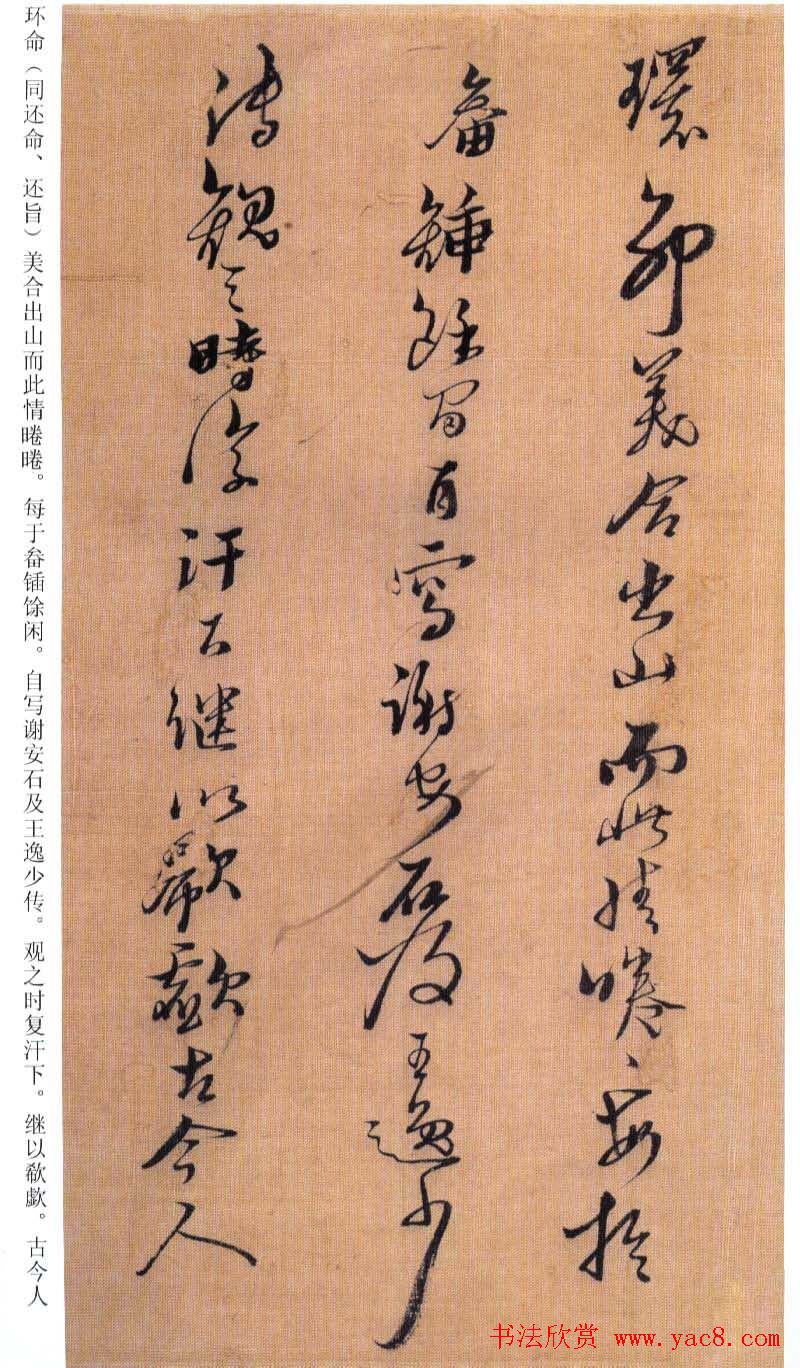 環命美合出山而此情睠〻每於
畚鍤餘間自寫謝安石及王逸少
傳觀之時復汗下繼以欷歔古今人
环命（同还命、还旨）美合出山而此情睠睠。每于畚锸馀闲。自写谢安石及王逸少传。观之时复汗下。继以欷歔。古今人
书法欣赏 www.yac8.com